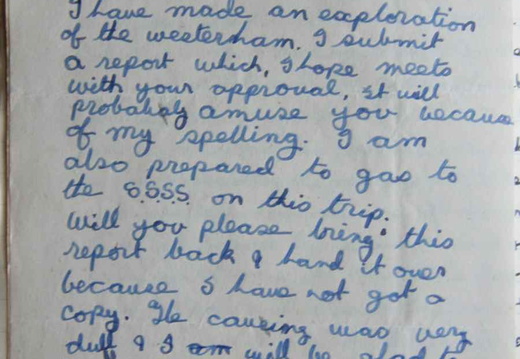 I have made an exploration
of the westerham. I submit
a report which, I hope meets
with your approval, it will
probabaly amuse you because
of my spelling. I am
also prepared to gao to
the S.S.S.S. on this trip.
Will you please bring this
report back & hand it over
because I have not got a
copy. The caveing was very
dull & I am will be glad to